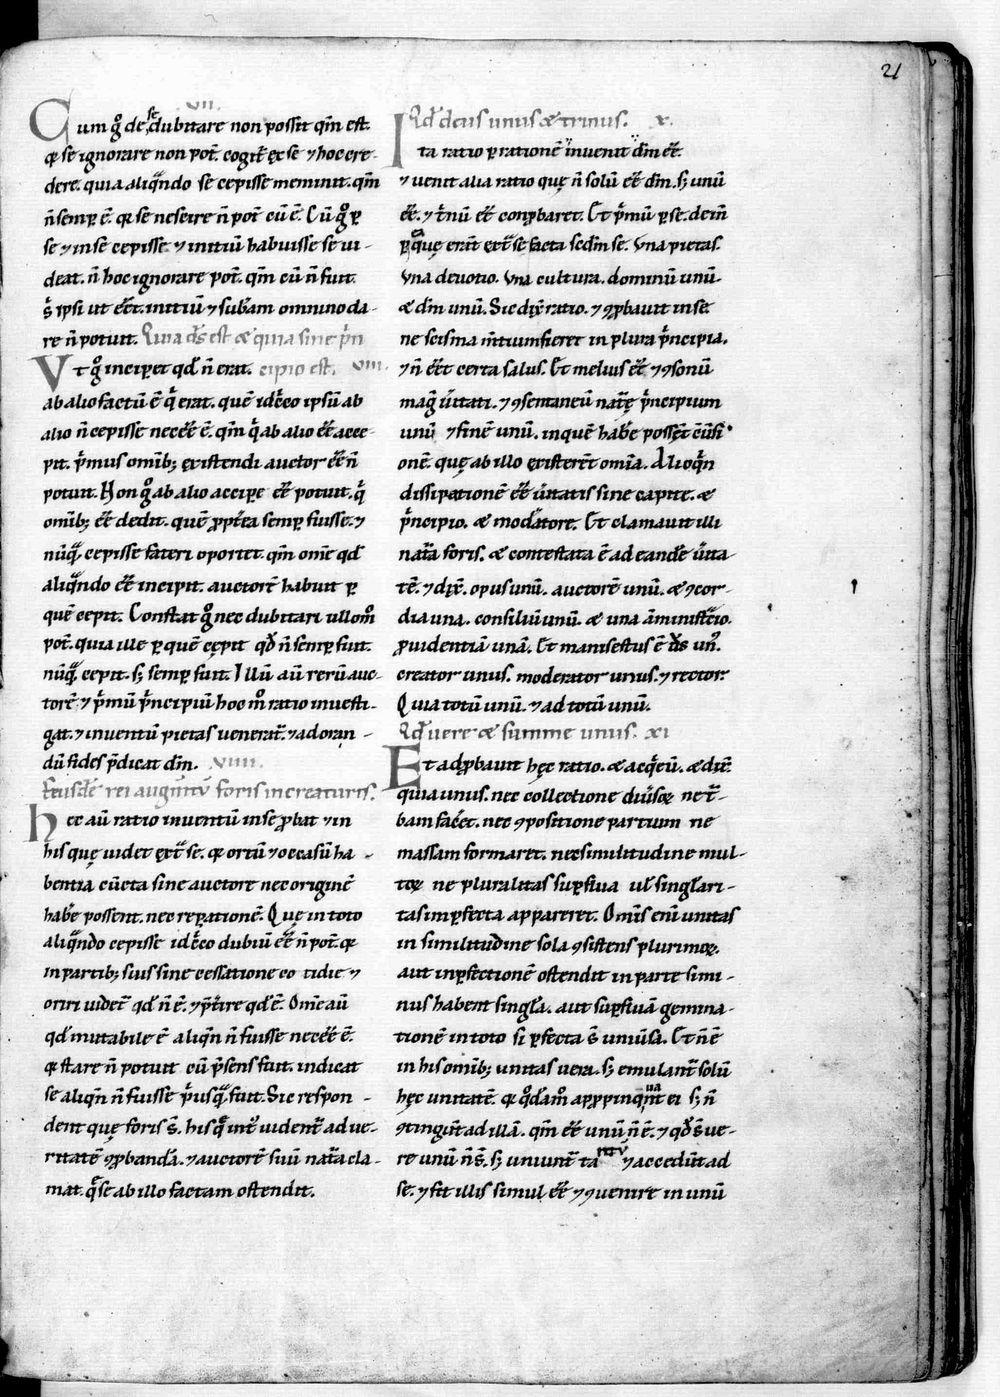 21
VII.
Cum gͦ de se dubitare non possit qm̄ est.
& se ignorare non pot̄. cogit̄ ex se ⁊ hoc cre-
dere. quia aliqͣndo se cepisse meminit. qm̄
n̄ semp̄ ē. & se nescire n̄ pot̄ cū ē. Cū gͦ p̄
se ⁊ in se cepisse ⁊ initiū habuisse se ui-
deat. n̄ hoc ignorare pot̄. qm̄ cū n̄ fuit
s̄ ipsi ut eēt. initiū ⁊ subam̄ omnino da-
re n̄ potuit. Quia ds̄ est & quia sine p̄n
Vt gͦ inciperet qd̄ n̄ erat. cipio est. VIII.
ab alio factū ē qͥ erat. quē idcͥco ipsū ab
alio n̄ cepisse necēe ē. qm̄ qͥ ab alio eē acce-
pit. pͥmus omīb; existendi auctor eē n̄
potuit. Non gͦ ab alio accipe eē potuit. qͥ
omīb; eē dedit. quē ꝓpt̄ea semp̄ fuisse. ⁊
nūqͣ cepisse fateri oportet. qm̄ om̄e qd̄
aliqͣndo eē incipit. auctorē habuit p̄
quē cepit. Constat gͦ nec dubitari ullomͦ
pot̄. quia ille p̄ quē cępit qd̄ n̄ semp̄ fuit.
nūqͣ cepit. s; semp̄ fuit. Illū aū rerū auc-
torē ⁊ pͥmū pͥncipiū hoc mͦ ratio inuesti-
gat. ⁊ inuentū pietas uenerat̄. ⁊ adoran-
dū fides p̄dicat dm̄. VIIII.
Eiusdē rei augmtū foris in creaturis.
hec aū ratio inuentū in se ꝓbat ⁊ in
his quę uidet ext̄ se. & ortū ⁊ occasū ha-
bentia cūcta sine auctore nec originē
habe possent. nec reparationē. Que in toto
aliqͣndo cepisse idcͥco dubiū eē n̄ pot̄. &
in partib; suis sine cessatione cotidie ⁊
oriri uidet̄ qd̄ n̄ ē. ⁊ p̄t̄ire qd̄ ē. Om̄e aū
qd̄ mutabile ē aliqn̄ n̄ fuisse necēe ē.
& stare n̄ potuit cū p̄sens fuit. indicat
se aliqn̄ n̄ fuisse pͥusqͣ fuit. Sic respon-
dent quę foris s̄. his qͣ int̄ uident̄ ad ue-
ritatē ꝯꝓbandā. ⁊ auctorē suū nat̄a cla-
mat. qͣ se ab illo factam ostendit.
Qd̄ deus unus & trinus. X.
Ita ratio p̄ rationē inuenit dm̄ eē.
⁊ uenit alia ratio quę n̄ solū eē dm̄. s; unū
eē. ⁊ tͥnū eē conꝓbaret. Et pͥmū p̄ se. dein̄
p̄ quę erāt ext̄ se facta scdm̄ se. Vna pietas.
Vna deuotio. Vna cultura. dominū unū
& dm̄ unū. Sic dix̄ ratio. ⁊ ꝯꝓbauit in se
ne scisma mtiumfieret in plura pͥncipia.
⁊ n̄ eēt certa salus. Et melius eē ⁊ ꝯsonū
magͥ u̅itati. ⁊ ꝯsentaneū nat̄ę pͥncipium
unū ⁊ finē unū. inquē habe possēt
onē. quę ab illo existerēt omīa. Alioqͥn
dissipationē eē u̅itatis sine capite. &
pͥncipio. & modatore. Et clamauit illi
nat̄a foris. & contestata ē ad eandē u̅ita-
tē. ⁊ dix̄. opus unū. auctorē unū. & ꝯcor-
dia una. consiliū unū. & una āministͣtio.
ꝓuidentiā unā. Et manifestus ē ds̄ unͦ.
creator unus. moderator unus. ⁊ rector.
Quia totū unū. ⁊ ad totū unū.
Qd̄ uere & summe unus. XI
Et adꝓbauit hęc ratio. & acqͥeū. & dix̄.
quia unus. nec collectione diu̅soꝝ ne t̄-
bam facēet. nec ꝯpositione partium ne
massam formaret. nec similitudine mul-
toꝝ ne pluralitas sup̄flua ul̄ singl̄ari-
tas imp̄fecta appareret. Omīs eni unitas
in similitudine sola ꝯsistens plurimoꝝ.
aut inp̄fectionē ostendit in parte simi-
nus habent singl̄a. aut sup̄fluā gemina-
tionē in toto si p̄fecta s̄ uniūsa. Et n̄ ē
in his omīb; unitas uera. s; emulant̄ solū
hęc unitatē. & qͦdāmͦ apꝓpinqͣnt ei s; n̄
ꝯtingūt ad illā. qm̄ eē unū n̄ ē. ⁊ qd̄ s̄ ue-
re unū n̄ s̄. s; uniunt̄ tantū ⁊ accedūt ad
se. ⁊ fit illis simul eē ⁊ ꝯuenire in unū